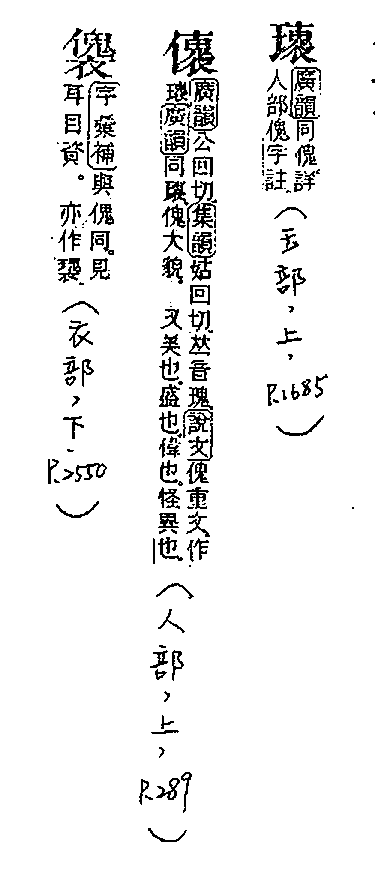 瓌
廣韻同傀詳
人部傀字註
（玉部，上，P.1685）
廣韻公回切集韻姑回切𠀤音瑰說文傀重文作
瓌廣韻同瓌傀大貌。又美也。盛也。偉也。怪異也。
（人部，上，P.289）
字彙補與傀同。見
耳目資。亦作
（衣部，下，P.2550）